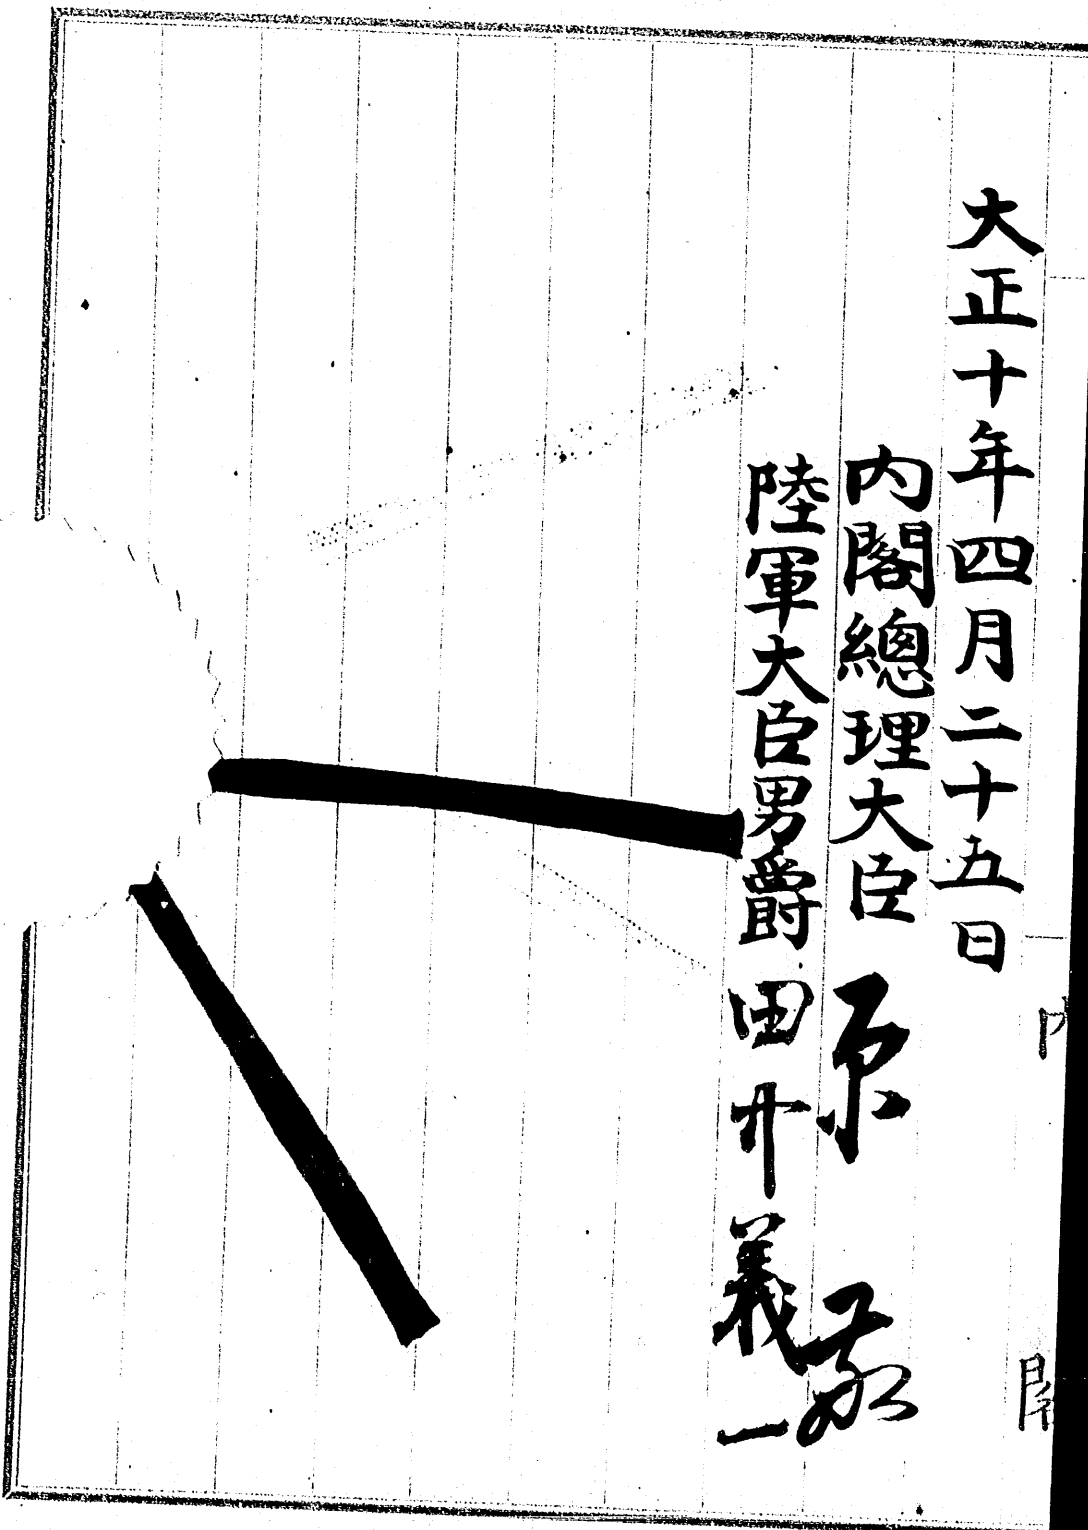 大正十年四月二十五日
内閣總理大臣 原敬
陸軍大臣男爵 田中義一
内閣